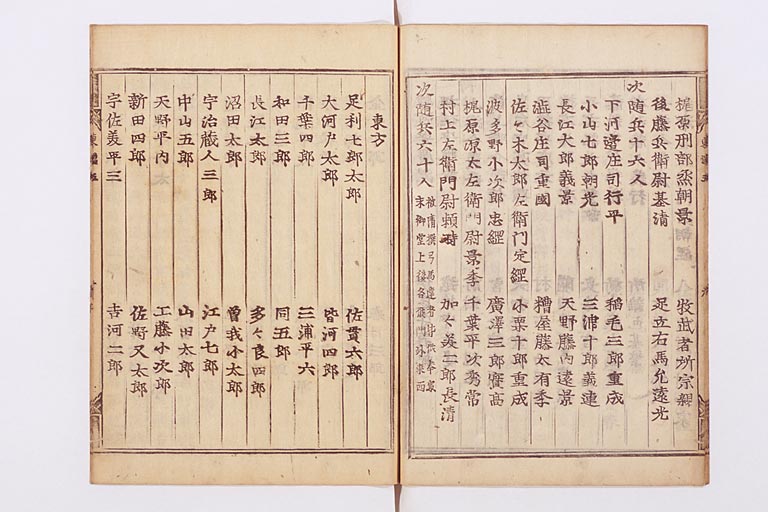 梶原刑部烝朝景 牧武者所宗親
後藤兵衛尉基清 足立右馬允遠光
次随兵十六人
下河邊庄司行平 稲毛三郎重成
小山七郎朝光 三浦十郎義連
長江太郎義景 天野藤内遠景
澁谷庄司重國 糟屋藤太有季
佐々木太郎左衛門定綱 小栗十郎重成
波多野小次郎忠綱 廣澤三郎實高
梶原源太左衛門尉景季 千葉平次常
村上左衛門尉頼時 加々美二郎長清
次随兵六十人 被清撰弓馬達者皆供奉
末御堂上後各門外東西
東方
足利七郎太郎 佐貫六郎
大河戸太郎 皆河四郎
千葉四郎 三浦平六
和田三郎 同五郎
長江太郎 多々良四郎
沼田太郎 曽我小太郎
宇治蔵人三郎 江戸七郎
中山五郎 山田太郎
天野平内 工藤小次郎
新田四郎 佐野又太郎
宇佐美平三 吉河二郎